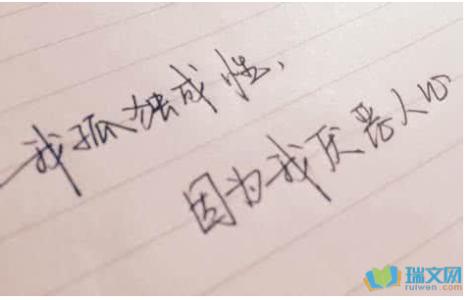 我孤独成性，
因为我厌恶人心
瑞文网
ruiwen.com